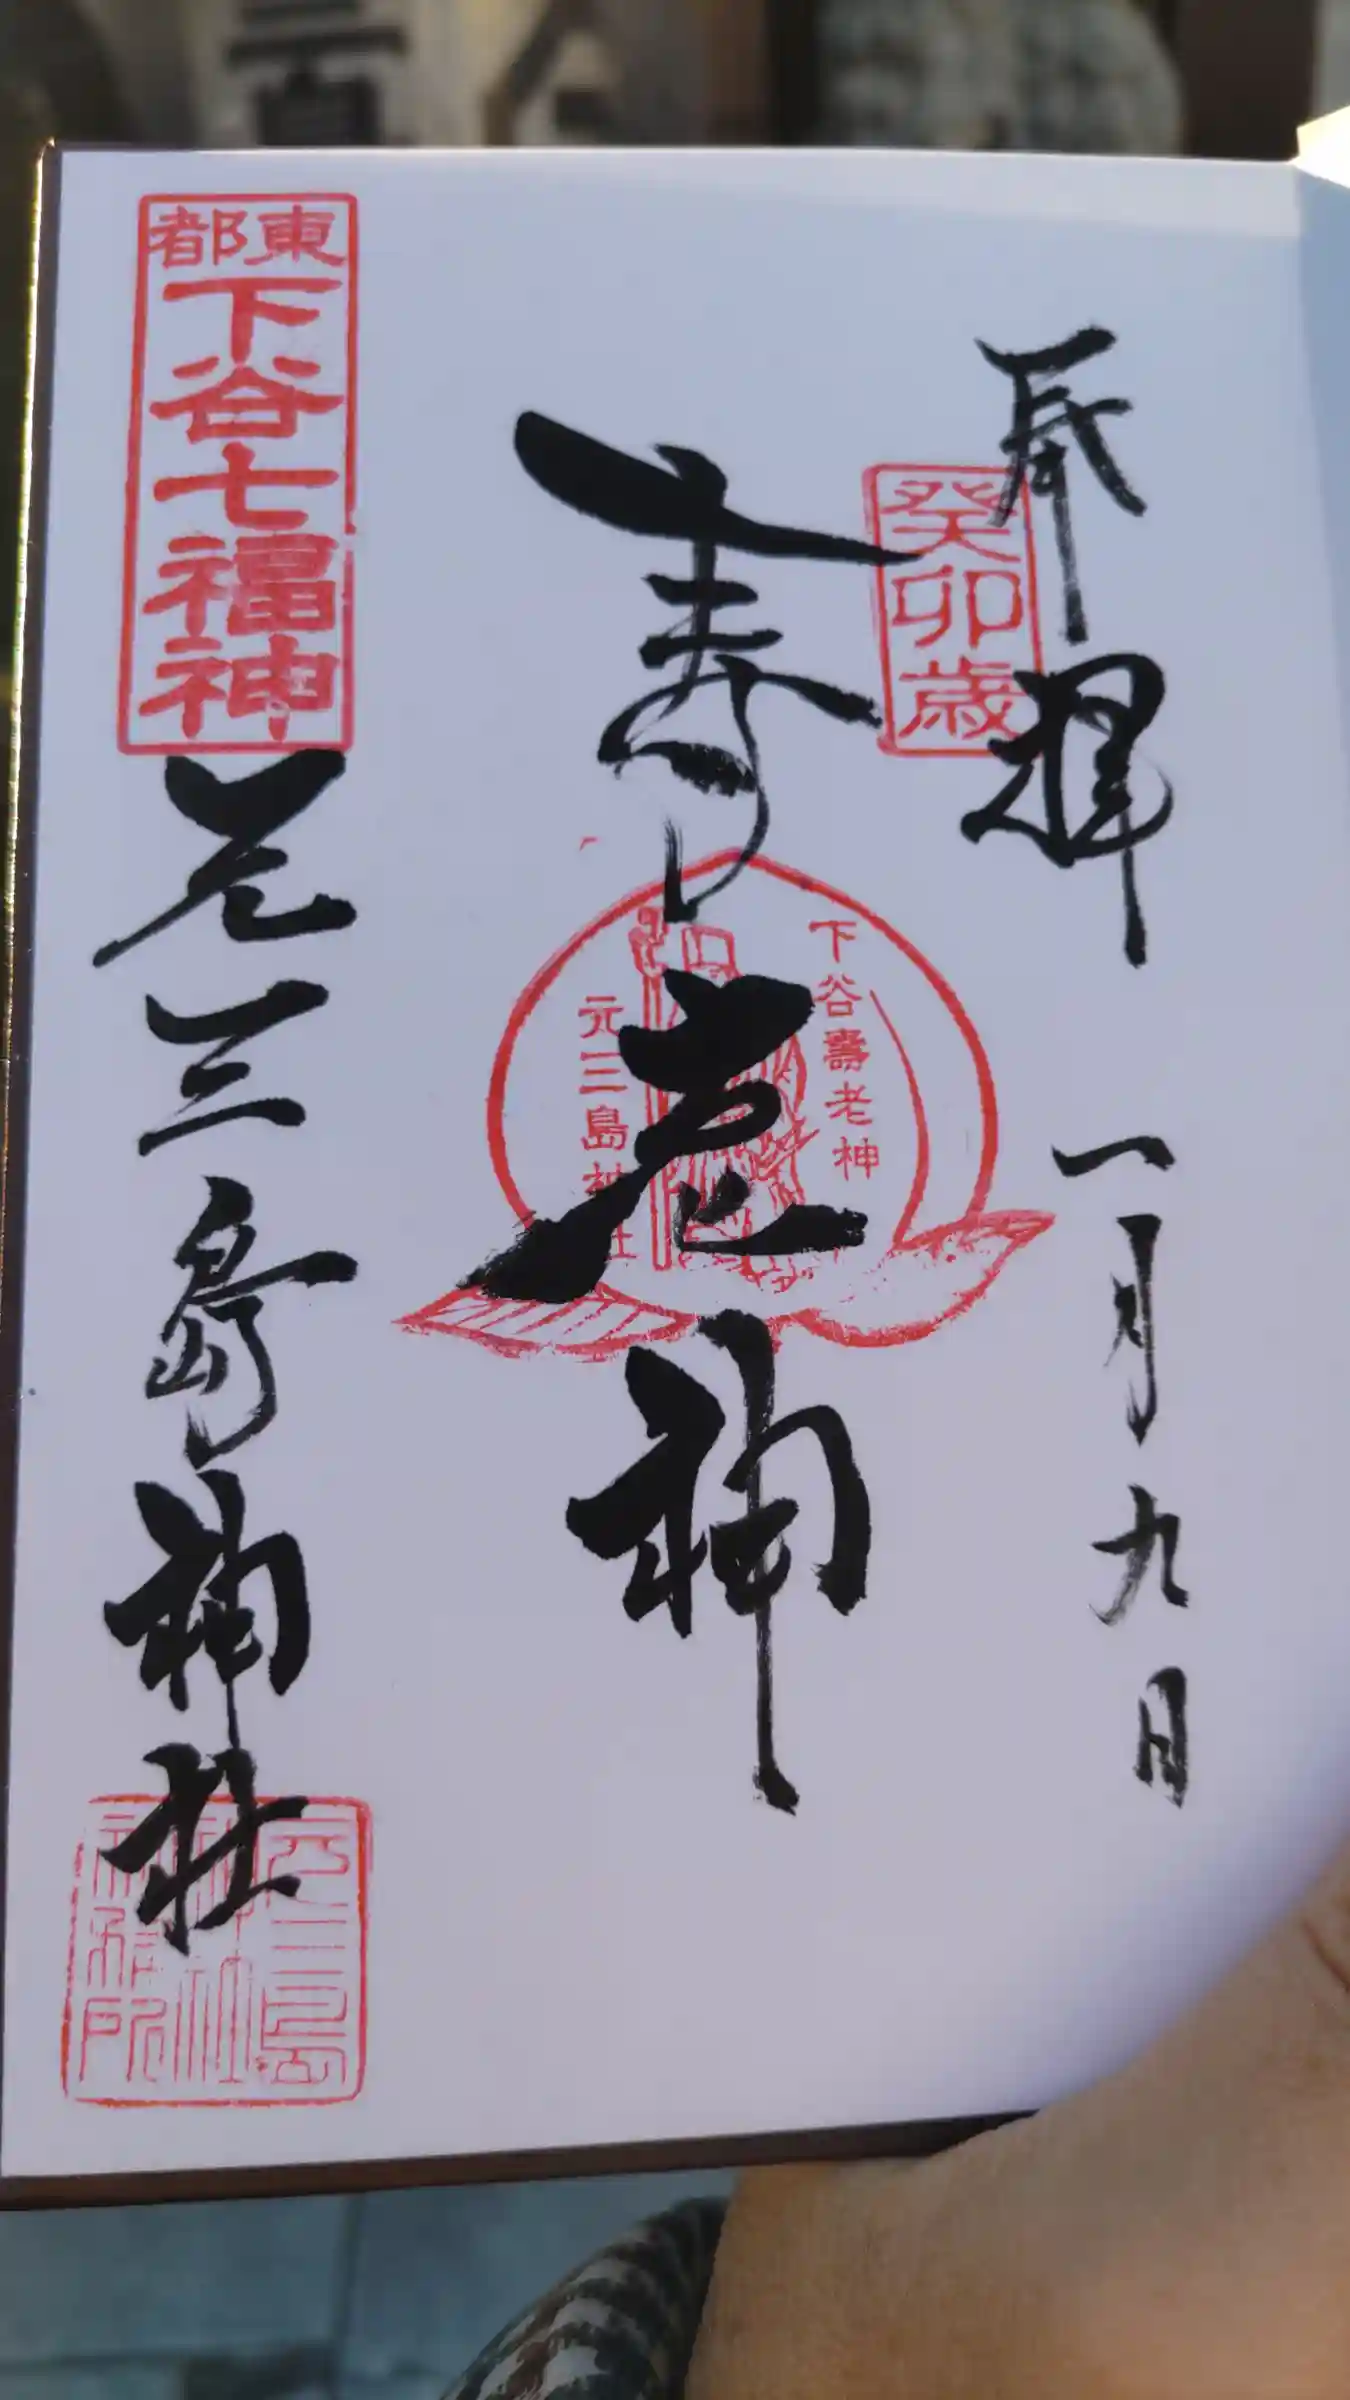 奉拝
癸卯歳
一月九日
寿老神
下谷壽老神
元三島神社
東都
下谷七福神
元三島神社
元三島
神社